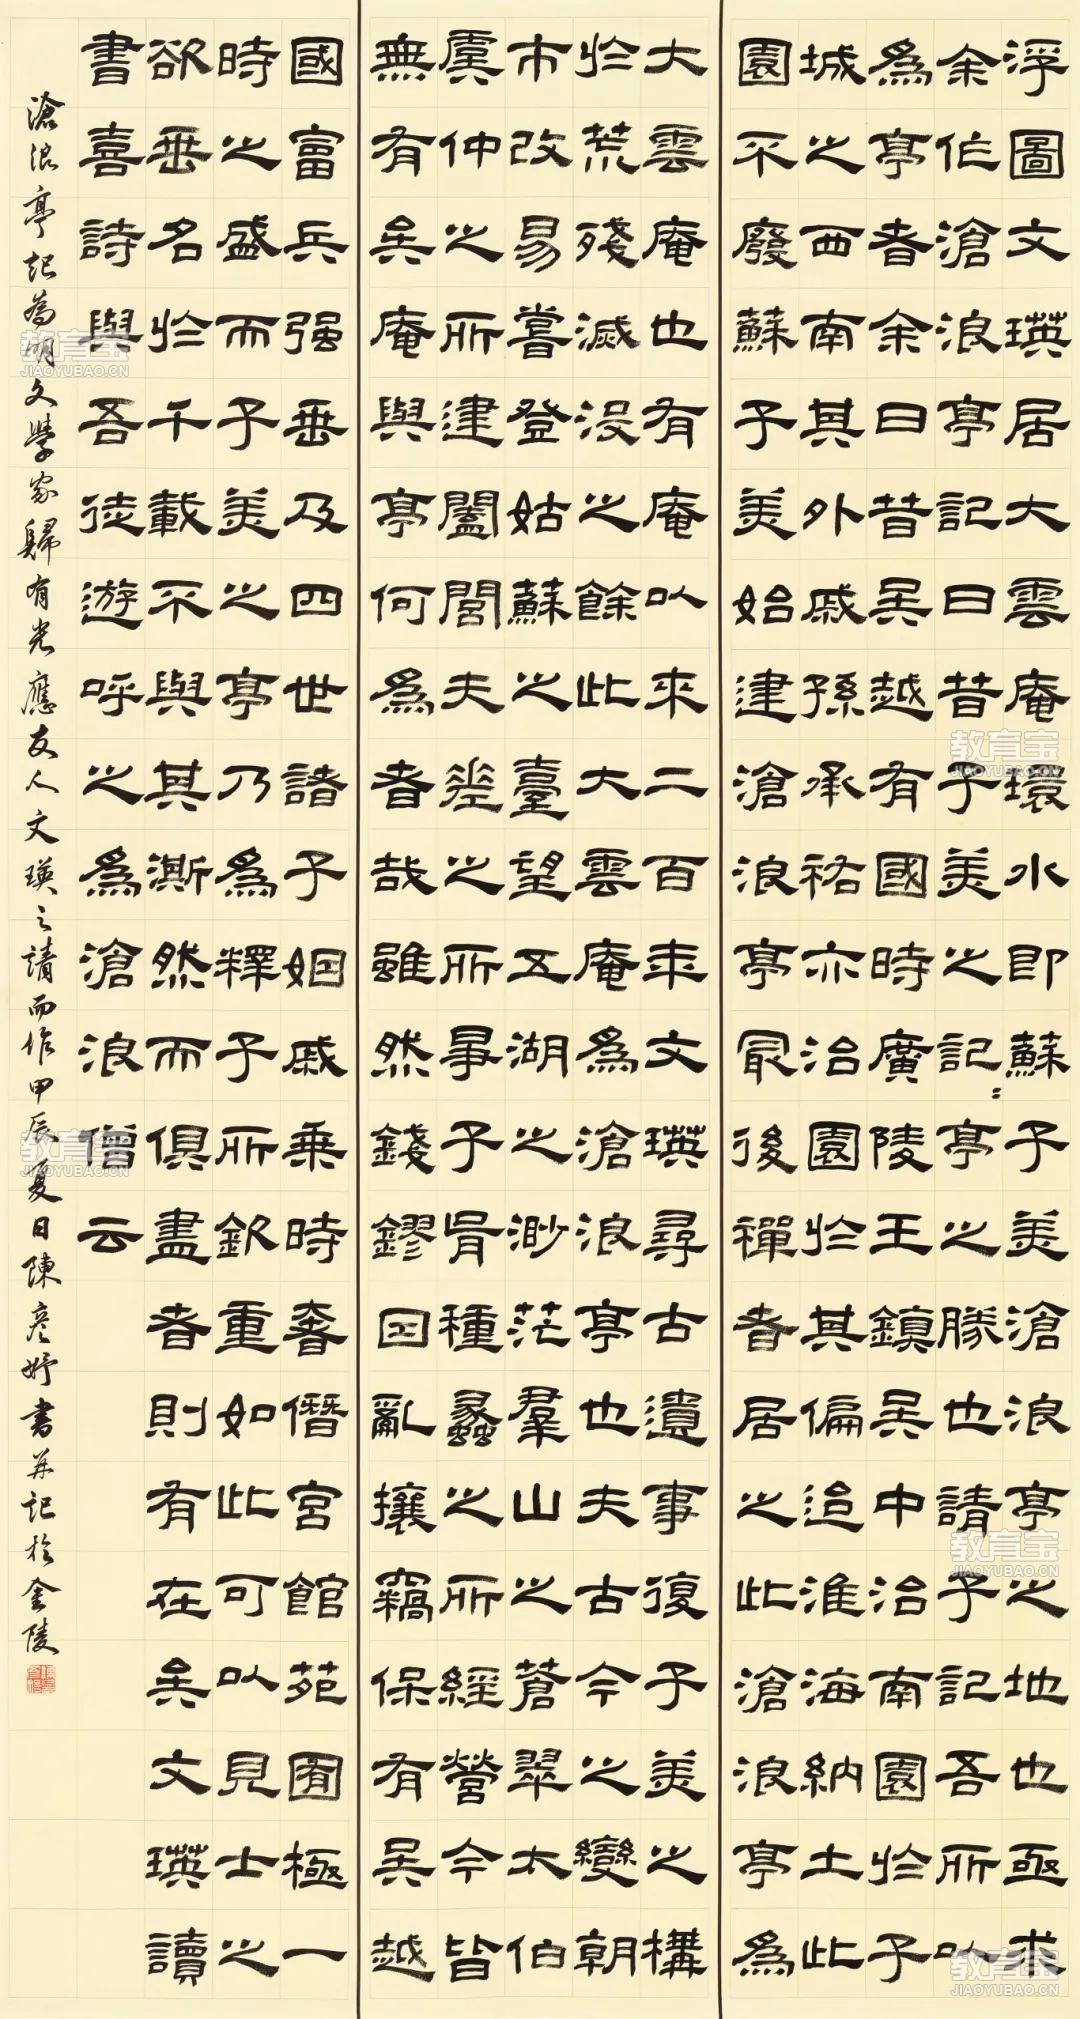 浮圖文瑛居大雲庵環水即蘇子美滄浪亭之地也亟求
余作滄浪亭記曰昔子美之記〻亭之勝也請子記吾所以
爲亭者余曰昔吳越有國時廣陵王鎮吳中治南園於子
城之西南其外戚孫承祐亦治園於其偏迨淮海納土此
園不廢蘇子美始建滄浪亭最後禪者居之此滄浪亭爲
大雲庵也有庵以來二百年文瑛尋古遺事復子美之構
於荒殘滅没之餘此大雲庵爲滄浪亭也夫古今之變朝
市改易嘗登姑蘇之臺望五湖之渺茫羣山之蒼翠太伯
虞仲之所建闔閭夫差之所爭子胥種蠡之所經營今皆
無有矣庵與亭何爲者哉雖然錢鏐因亂攘竊保有吳越
國富兵强垂及四世諸子姻戚乘時奢僭宮館苑囿極一
時之盛而子美之亭乃爲釋子所欽重如此可以見士之
欲垂名於千載不與其澌然而俱盡者則有在矣文瑛讀
書喜詩與吾徒遊呼之爲滄浪僧云
滄浪亭記爲明文學家歸有光應友人文瑛之請而作甲辰夏日陳彦妤書并記於金陵
教育宝
JIAOYUBAO.CN
教育宝
JIAOYUBAO.CN
教育宝
JIAOYUBAO.CN
教育宝
JIAOYUBAO.CN
教育宝
JIAOYUBAO.CN